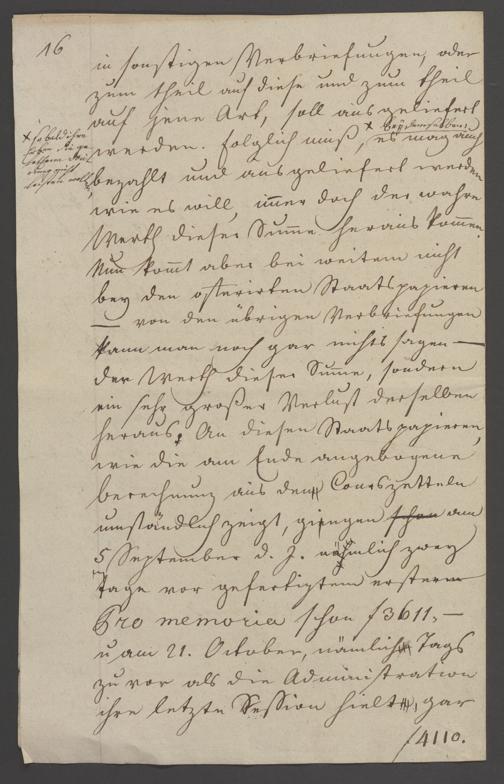 16
in sonstigen Verbriefungen, oder
zum theil auf diese und zum theil
auf jene Art, soll ausgeliefert
werden. Folglich muß, es mag auch
bezahlt und ausgeliefert werden
wie es will, immer doch der wahre
Werth dieser Summe heraus kommen.
Nun kommt aber bei weitem nicht
bey den offerirten Staatspapieren
— von den übrigen Verbriefungen
kann man noch gar nichts sagen —
der Werth dieser Summe, sondern
ein sehr großer Verlust derselben
heraus. An diesen Staatspapieren,
wie die am Ende angebogene
berechnung aus den Courszetteln
umständlich zeigt, gingen schon am
5 September d. J. nämlich zwey
Tage vor gefertigtem ersterm
Pro memoria schon f 3611,—
u am 21. October, nämlich Tags
zu vor als die Administration
ihre letzte Session hielt, gar
f 4110.